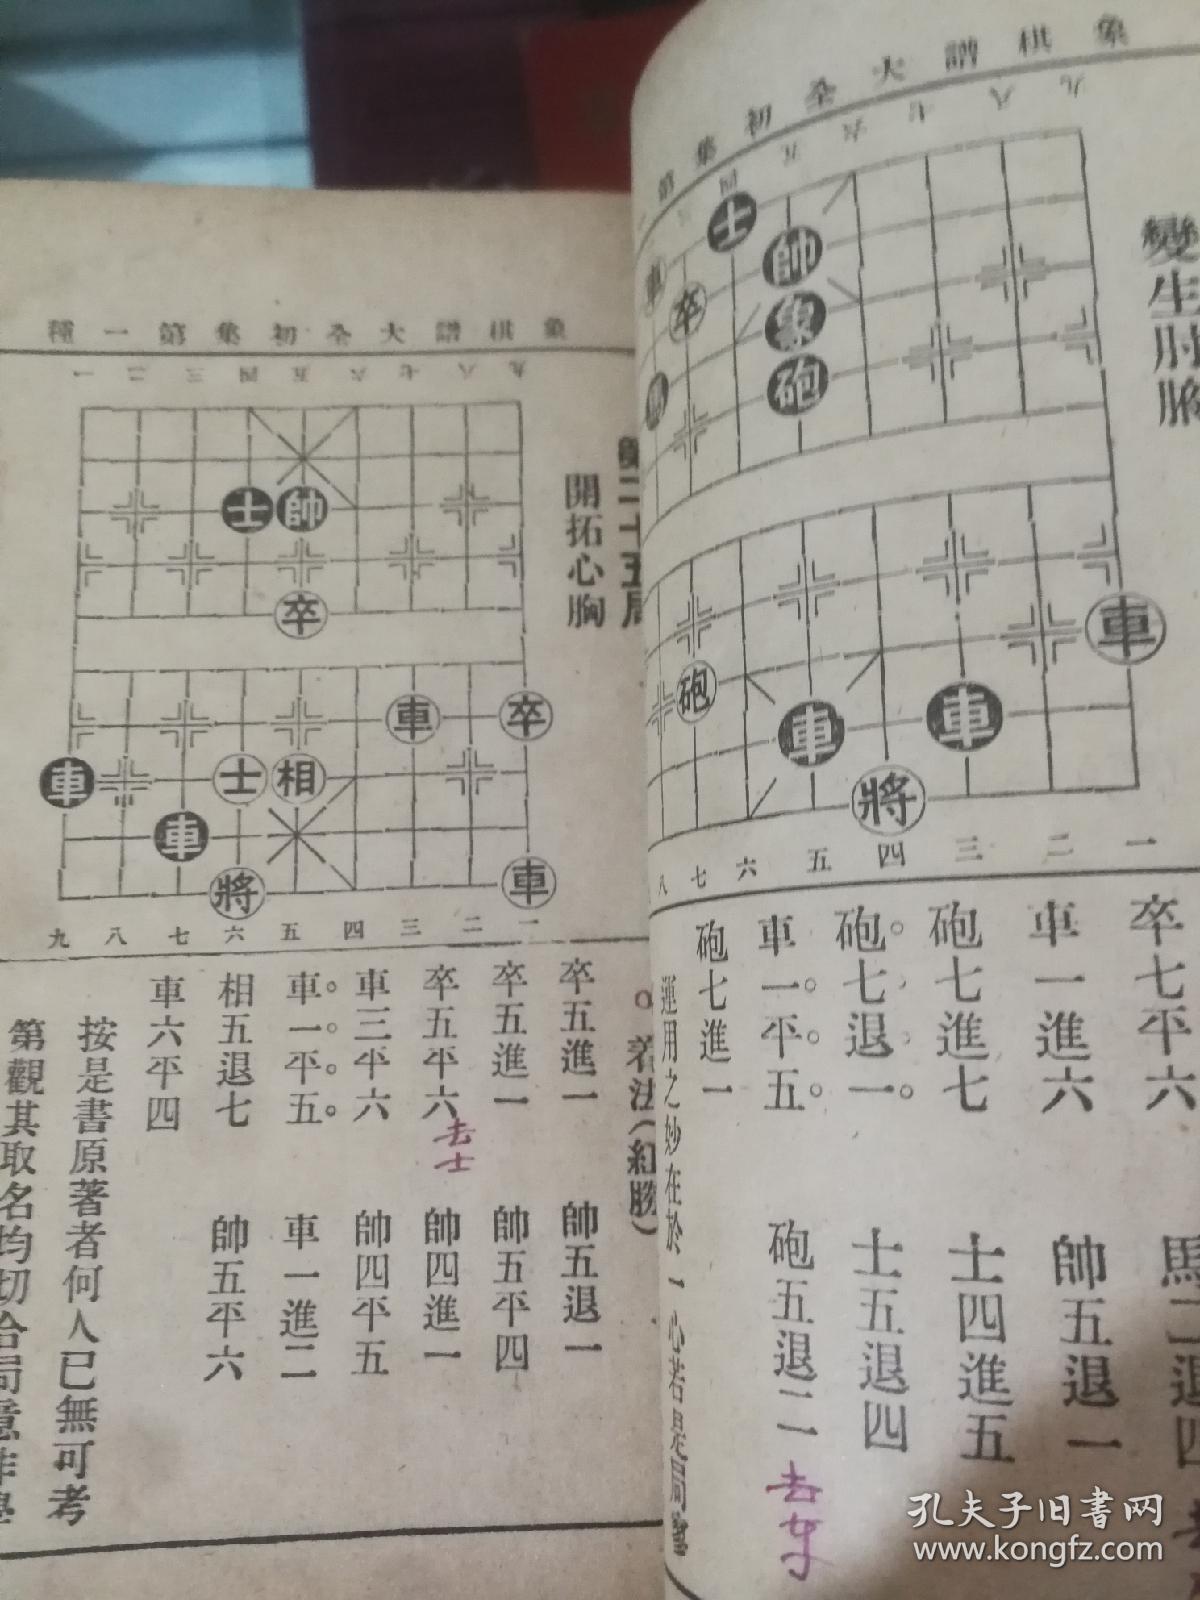 象棋譜大全初集第
九 八 七 六 五 四
變生肘腋
士
帥
車
卒
象
砲
車
砲
車
車
將
八 七 六 五 四 三 二 一
卒七平六
馬二退四
車一進六
帥五退一
砲七進七
士四進五
砲七退一
士五退四
車一平五
砲五退二 去车
砲七進一
運用之妙在於一心若是局
象棋譜大全初集第一種
九 八 七 六 五 四 三 二 一
第二十五局
開拓心胸
士 帥
卒
車 卒
車 士 相
車
將 車
九 八 七 六 五 四 三 二 一
着法(紅勝)
卒五進一 帥五退一
卒五進一 帥五平四
卒五平六 去士 帥四進一
車三平六 帥四平五
車一平五 車一進二
相五退七 帥五平六
車六平四
按是書原著者何人已無可考
第觀其取名均切合局意非學
孔夫子旧书网
www.kongfz.com